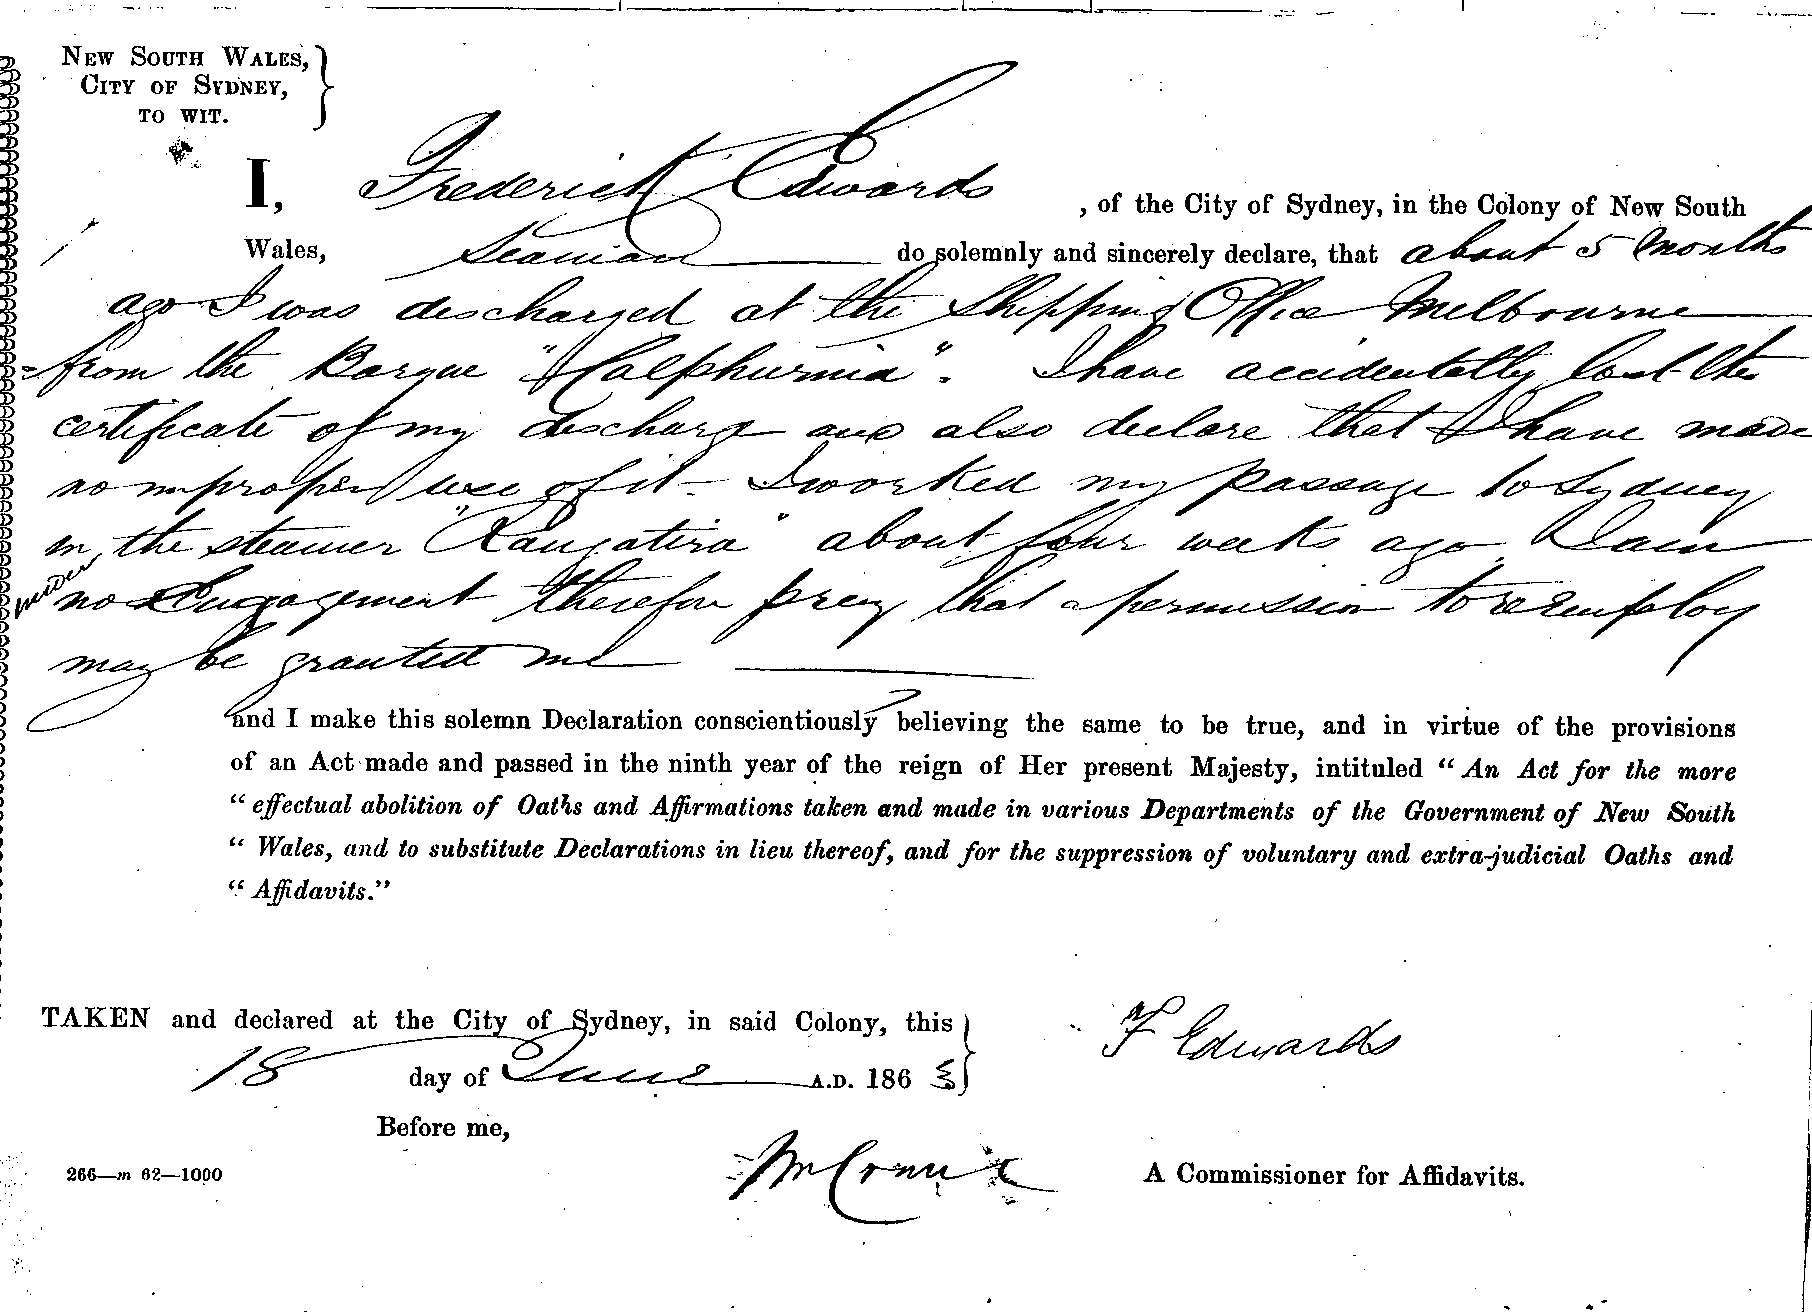 NEW SOUTH WALES,
CITY OF SYDNEY,
TO WIT.
I, Frederick Edwards , of the City of Sydney, in the Colony of New South
Wales, Seaman do solemnly and sincerely declare, that about 5 months
ago I was discharged at the Shipping Office Melbourne
from the Barque "Calphurnia". I have accidentally lost the
certificate of my discharge and also declare that I have made
no improper use of it - I worked my passage to Sydney
in the steamer "Rangatira" about four weeks ago I am
under no Engagement therefore pray that a permission to reemploy
may be granted me
and I make this solemn Declaration conscientiously believing the same to be true, and in virtue of the provisions
of an Act made and passed in the ninth year of the reign of Her present Majesty, intituled "An Act for the more
"effectual abolition of Oaths and Affirmations taken and made in various Departments of the Government of New South
"Wales, and to substitute Declarations in lieu thereof, and for the suppression of voluntary and extra-judicial Oaths and
"Affidavits."
TAKEN and declared at the City of Sydney, in said Colony, this
18 day of June A.D. 186
F Edwards
Before me,
A Commissioner for Affidavits.
266—m 62—1000